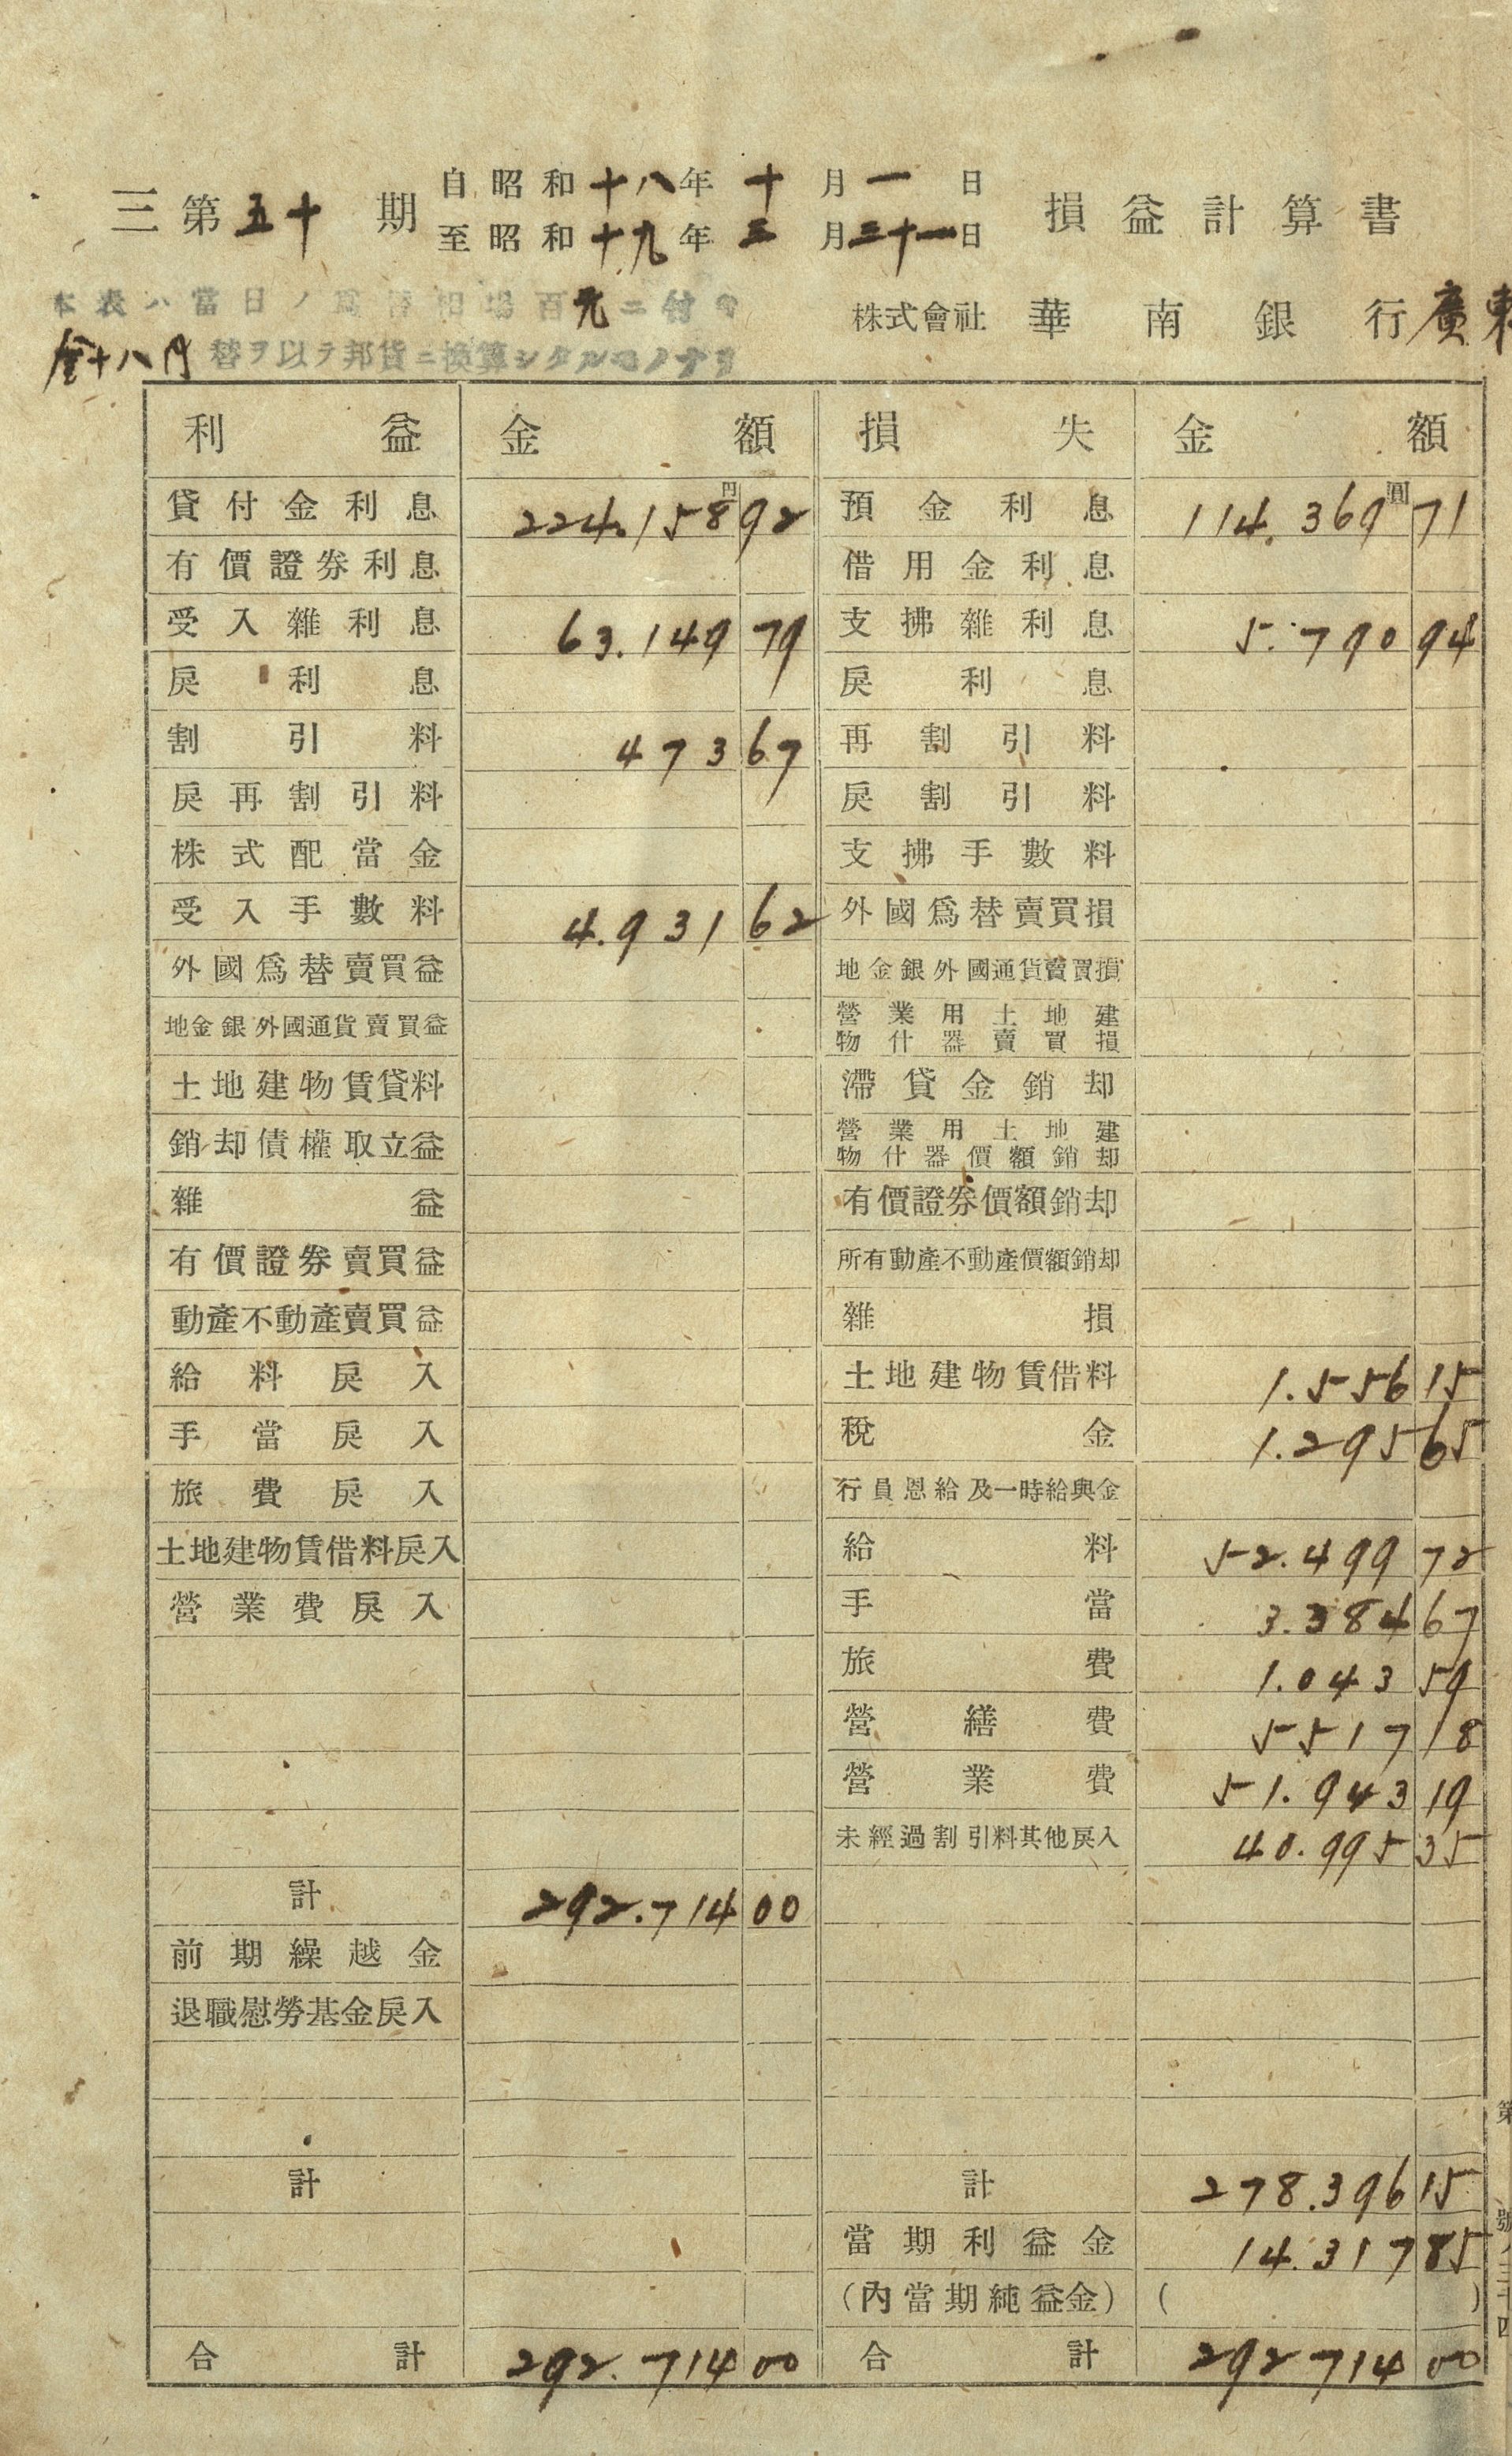 三 第五十期 自昭和十八年十月一日 損益計算書
至昭和十九年三月三十一日
本表ハ當日ノ爲替相場百元ニ付キ 株式會社 華南銀行廣東
金十八円替ヲ以テ邦貨ニ換算シタルモノナリ
利益 金額 損失 金額
貸付金利息 224.158円92 預金利息 114.369圓71
有價證券利息 借用金利息
受入雜利息 63.149 79 支拂雜利息 5.790 94
戾利息 戾利息
割引料 473 67 再割引料
戾再割引料 戾割引料
株式配當金 支拂手數料
受入手數料 4.931 62 外國爲替賣買損
外國爲替賣買益 地金銀外國通貨賣買損
地金銀外國通貨賣買益 營業用土地建物什器賣買損
土地建物賃貸料 滯貸金銷却
銷却債權取立益 營業用土地建物什器價額銷却
雜益 有價證券價額銷却
有價證券賣買益 所有動產不動產價額銷却
動產不動產賣買益 雜損
給料戾入 土地建物賃借料 1.556 15
手當戾入 稅金 1.295 65
旅費戾入 行員恩給及一時給與金
土地建物賃借料戾入 給料 52.499 72
營業費戾入 手當 3.384 67
旅費 1.043 59
營繕費 5517 18
營業費 51.943 19
未經過割引料其他戾入 40.995 35
計 292.714 00
前期繰越金
退職慰勞基金戾入
計 計 278.396 15
當期利益金 14.317 85
(內當期純益金) ( )
合計 292.714 00 合計 292 714 00